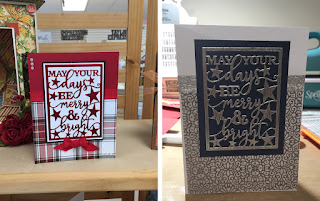 MAY YOUR
days
BE
merry
&
bright
MAY YOUR
days
BE
merry
&
bright